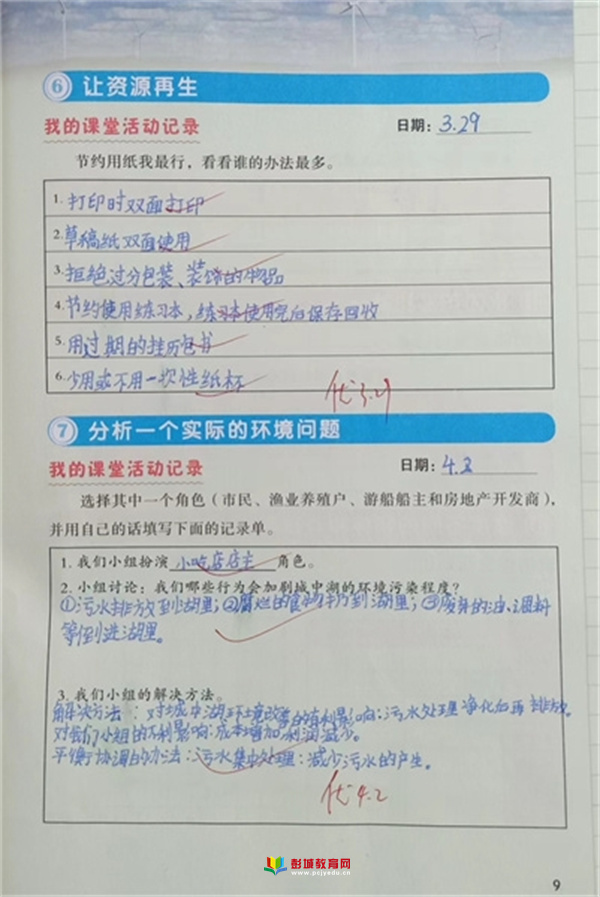 6 让资源再生
我的课堂活动记录 日期: 3.29
节约用纸我最行，看看谁的办法最多。
1. 打印时双面打印
2. 草稿纸双面使用
3. 拒绝过分包装、装饰的物品
4. 节约使用练习本，练习本使用完后保存回收
5. 用过期的挂历包书
6. 少用或不用一次性纸杯
优 3.29
7 分析一个实际的环境问题
我的课堂活动记录 日期: 4.2
选择其中一个角色（市民、渔业养殖户、游船船主和房地产开发商），
并用自己的话填写下面的记录单。
1. 我们小组扮演 小吃店店主 角色。
2. 小组讨论：我们哪些行为会加剧城中湖的环境污染程度？
①污水排放到湖里；②腐烂的食物扔到湖里；③废弃的油、调料
等倒进湖里。
3. 我们小组的解决方法。
解决方法：对城中湖环境改善的有利影响：污水处理净化后再排放。
对我们小组的不利影响：成本增加利润减少。
平衡协调的办法：污水集中处理；减少污水的产生。
优 4.2
彭城教育网
www.pcjyedu.cn
9